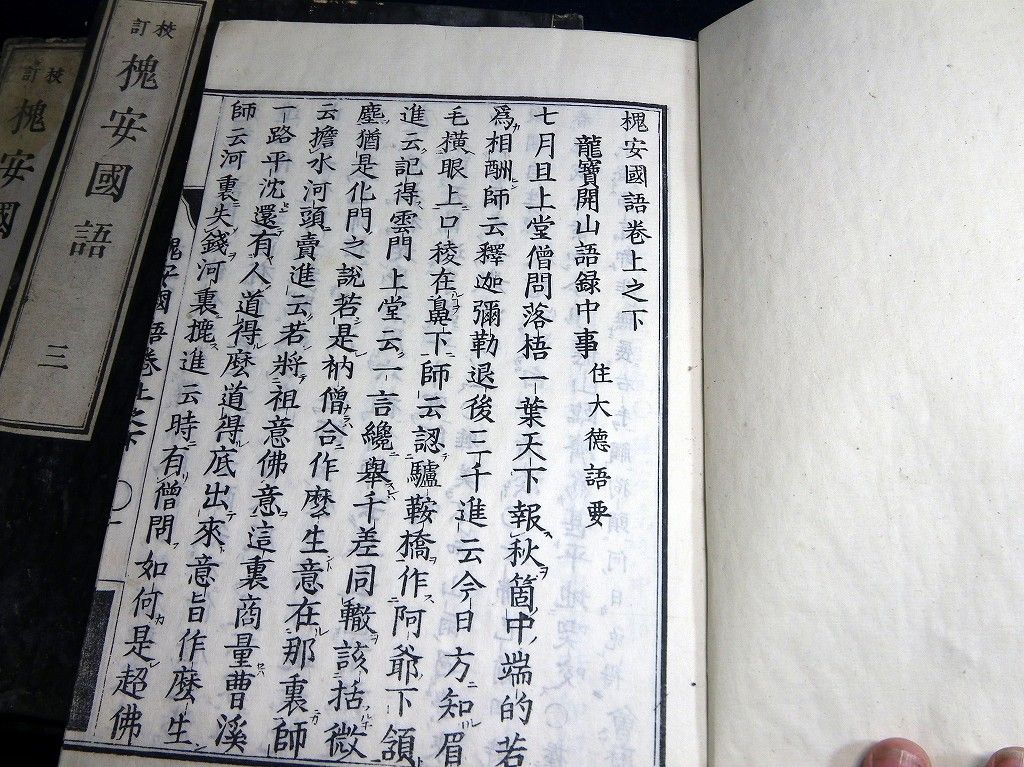 槐安國語卷上之下
龍寶開山語録中事 住大德語要
七月旦上堂僧問落梧一葉天下報秋箇中端的若
爲相酬師云釋迦彌勒退後三千進云今日方知眉
毛橫眼上口稜在鼻下師云認驢鞍橋作阿爺下頷
進云記得雲門上堂云一言纔舉千差同轍該括微
塵猶是化門之說若是衲僧合作麽生意在那裏師
云擔水河頭賣進云若將祖意佛意這裏商量曹溪
一路平沈還有人道得麽道得底出來意旨作麽生
師云河裏失錢河裏摝進云時有僧問如何是超佛
槐安國語卷上之下
校訂
槐安國語
三
校訂
槐安國